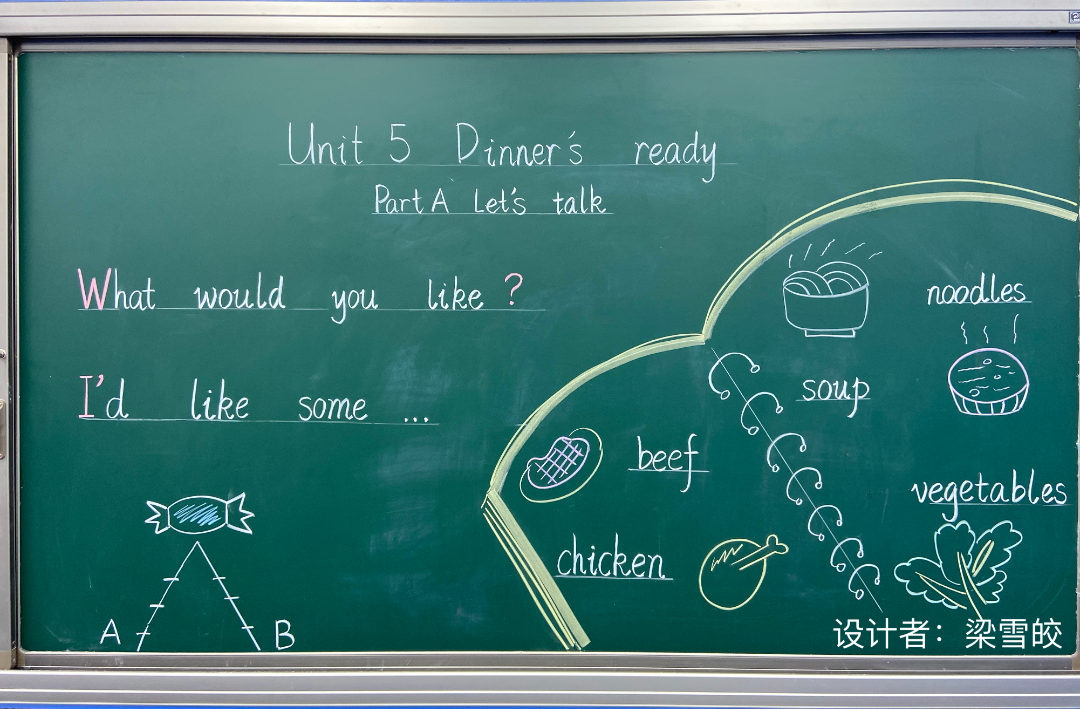 Unit 5 Dinner's ready
Part A Let's talk
What would you like ?
I'd like some ...
noodles
soup
beef
vegetables
chicken
A B
设计者：梁雪皎